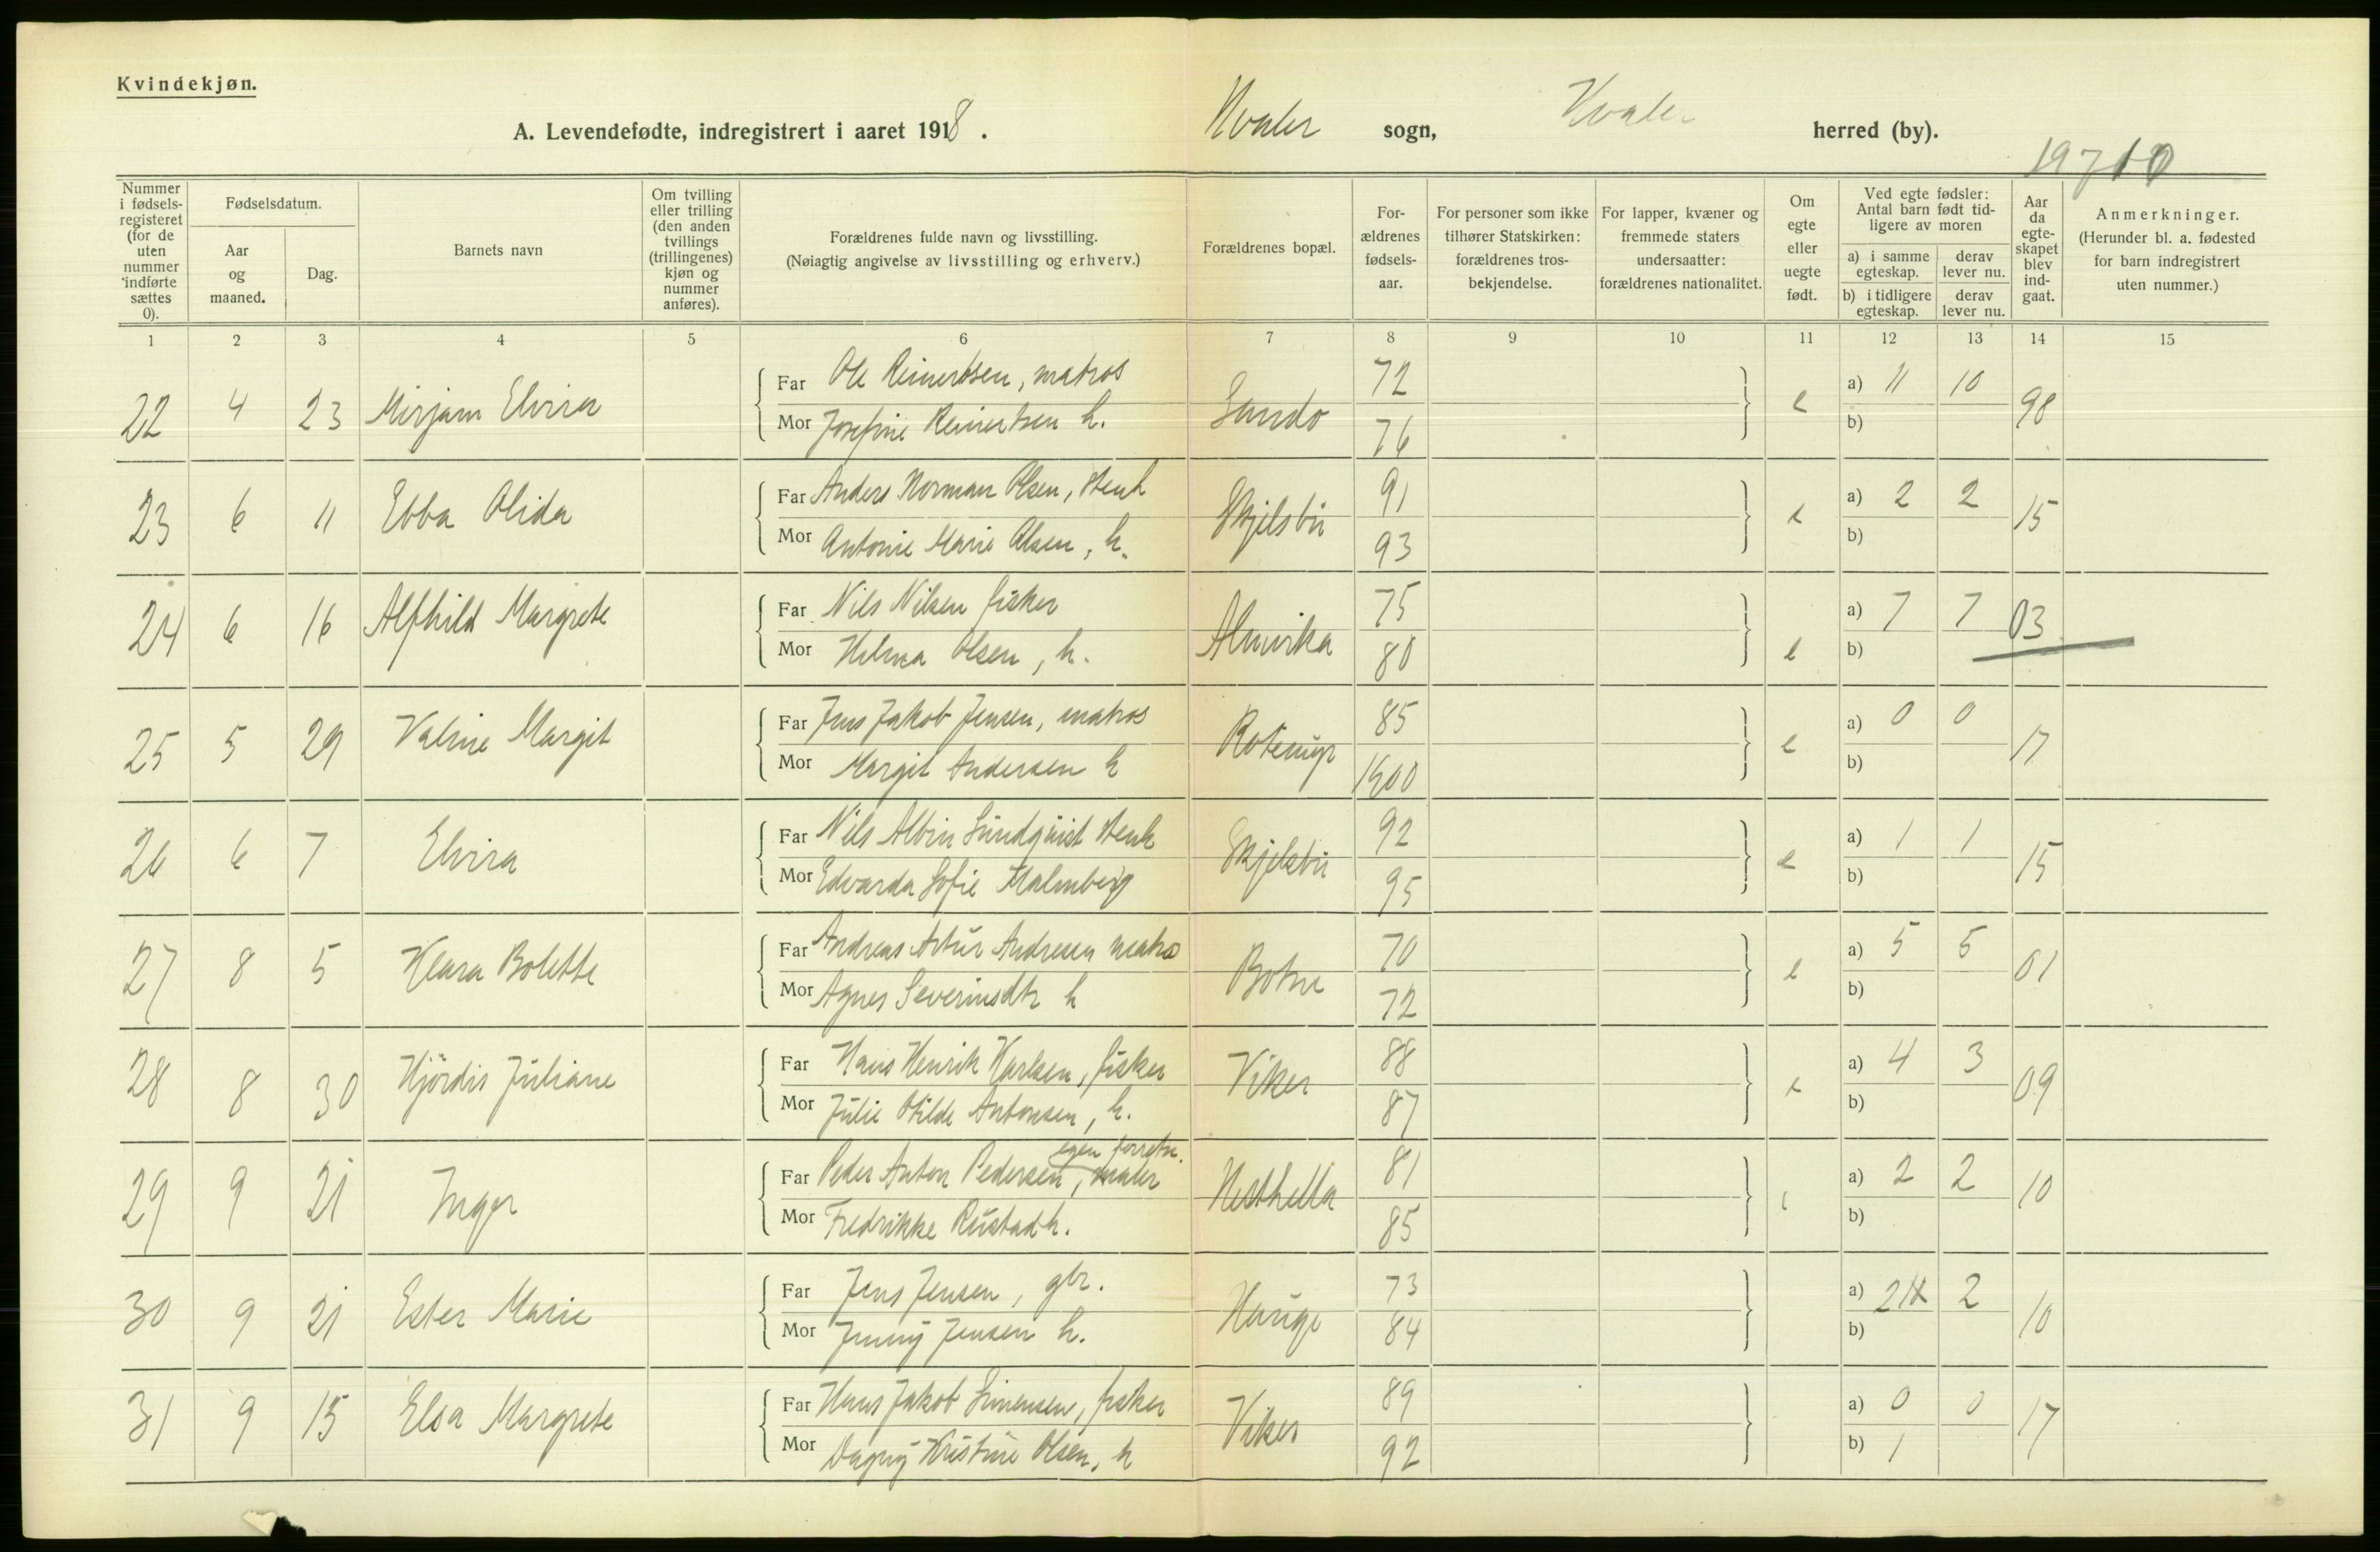 Kvindekjøn.
A. Levendefødte, indregistrert i aaret 1918. Hvaler sogn, Hvaler herred (by).
Nummer i fødselsregisteret (for de uten nummer indførte sættes 0).
Fødselsdatum.
Aar og maaned.
Dag.
Barnets navn
Om tvilling eller trilling (den anden tvillings (trillingenes) kjøn og nummer anføres).
Forældrenes fulde navn og livsstilling.
(Nøiagtig angivelse av livsstilling og erhverv.)
Forældrenes bopæl.
Forældrenes fødselsaar.
For personer som ikke tilhører Statskirken: forældrenes trosbekjendelse.
For lapper, kvæner og fremmede staters undersaatter: forældrenes nationalitet.
Om egte eller uegte født.
Ved egte fødsler: Antal barn født tidligere av moren
a) i samme egteskap. derav lever nu.
b) i tidligere egteskap. derav lever nu.
Aar da egteskapet blev indgaat.
Anmerkninger.
(Herunder bl. a. fødested for barn indregistrert uten nummer.)
1 2 3 4 5 6 7 8 9 10 11 12 13 14 15
22 4 23 Mirjam Elvira Far Ole Reinertsen, matros Sando 72 e a) 11 10 98
Mor Josefine Reinertsen h. 76 b)
23 6 11 Ebba Olida Far Anders Norman Olsen, stenh Skjelsbu 91 e a) 2 2 15
Mor Antonie Marie Olsen, h. 93 b)
24 6 16 Alfhild Margrete Far Nils Nilsen fisker 75 e a) 7 7 03
Mor Helma Olsen, h. 80 b)
25 5 29 Valine Margit Far Jens Jakob Jensen, matros 85 e a) 0 0 17
Mor Margit Andersen h 1900 b)
26 6 7 Elvira Far Nils Albin Sundquist stenh Skjelsbu 92 e a) 1 1 15
Mor Edvarda Sofie Malmberg 95 b)
27 8 5 Klara Bolette Far Andreas Artur Andresen matro Botne 70 e a) 5 5 01
Mor Agnes Severinsdtr h 72 b)
28 8 30 Hjördis Juliane Far Hans Henrik Karlsen, fisker Viker 88 e a) 4 3 09
Mor Julie Otilde Antonsen, h. 87 b)
egen forretn.
29 9 21 Inger Far Peder Anton Pedersen, maler Nesthella 81 a) 2 2 10
Mor Fredrikke Rustad h. 85 b)
30 9 21 Ester Marie Far Jens Jensen, gbr. 73 a) 2 2 10
Mor Jenny Jensen h. 84 b)
31 9 15 Elsa Margrete Far Hans Jakob Simensen, fisker Viker 89 a) 0 0 17
Mor Dagny Kristine Olsen, h 92 b) 1